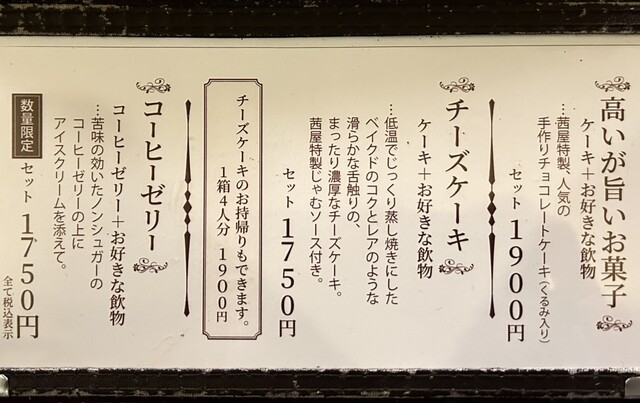 高いが旨いお菓子
ケーキ＋お好きな飲物
…茜屋特製、人気の
手作りチョコレートケーキ（くるみ入り）
セット 1900円
チーズケーキ
ケーキ＋お好きな飲物
…低温でじっくり蒸し焼きにした
ベイクドのコクとレアのような
滑らかな舌触りの、
まったり濃厚なチーズケーキ。
茜屋特製じゃむソース付き。
セット 1750円
チーズケーキのお持帰りもできます。
1箱4人分 1900円
コーヒーゼリー
コーヒーゼリー＋お好きな飲物
…苦味の効いたノンシュガーの
コーヒーゼリーの上に
アイスクリームを添えて。
数量限定 セット 1750円
全て税込表示